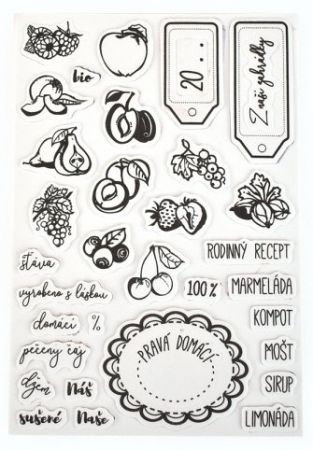 bio
20 . .
Z naší zahrádky
RODINNÝ RECEPT
šťáva
vyrobeno s láskou
100%
MARMELÁDA
domácí
%
KOMPOT
PRAVÁ DOMÁCÍ
pečený čaj
MOŠT
džem
Náš
SIRUP
sušené
Naše
LIMONÁDA